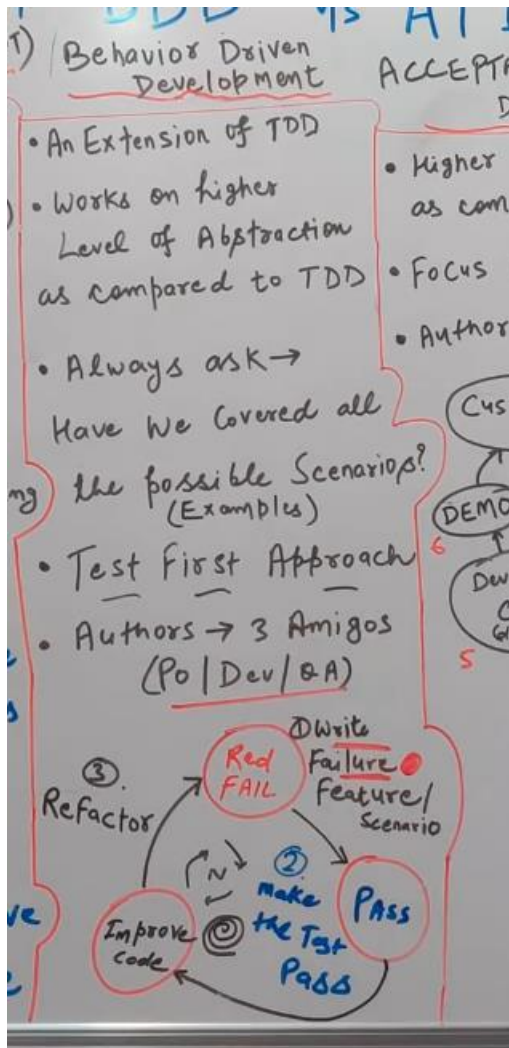 BDD vs AT
T)
Behavior Driven
Development
• An Extension of TDD
• Works on higher
Level of Abstraction
as compared to TDD
• Always ask →
Have We Covered all
the possible Scenarios?
(Examples)
• Test First Approach
• Authors → 3 Amigos
(Po/Dev/QA)
① Write
Failure
Feature/
Scenario
Red
FAIL
③
Refactor
N
②
Make
the Test
Pass
PAss
Improve
Code
ACCEPTA
D
• Higher
as com
• Focus
• Author
Cus
DEMO
6
Dev
5
ng
ve